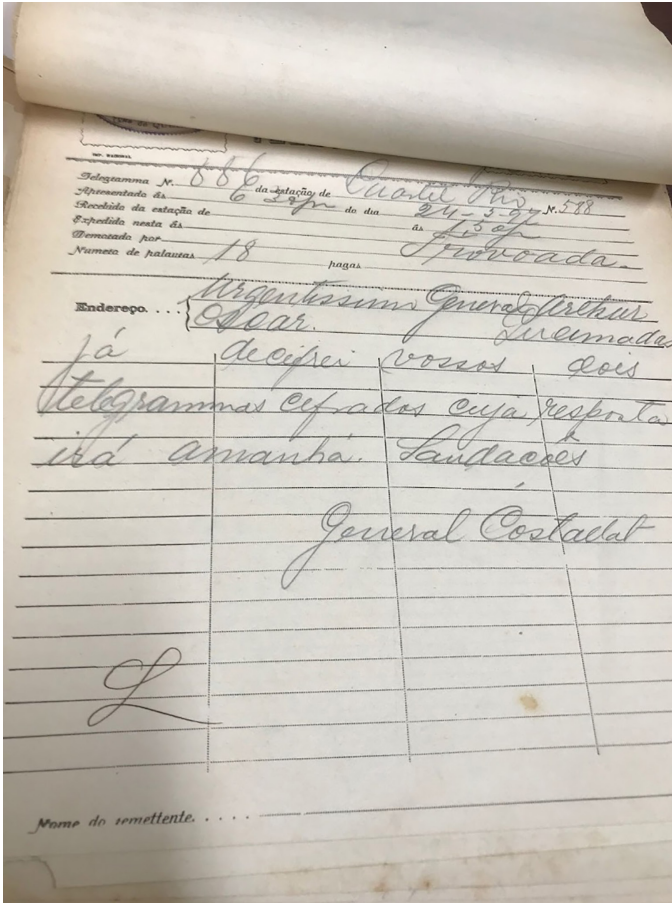 IMP. NACIONAL
Telegramma N. 886 da estação de Quartel Rio N. 588
Apresentado ás 6 do dia 24-5-97
Recebido da estação de ás 1,50p
Expedido nesta ás
Demorado por Trovoada
Numero de palavras 18 pagas
Endereço.... Urgentissimo General Arthur
Oscar. Queimadas
já decifrei vossos dois
telegrammas cifrados cuja resposta
irá amanhã. Saudações
General Costallat
L
Nome do remettente. . . . .